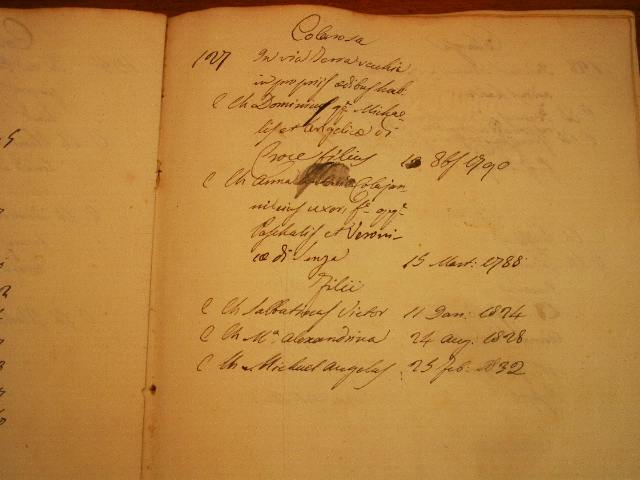 Colarosa
127 In via Terra vecchia
in propriis ædibus hab.
C Ch Dominicus qm Michae-
lis et Angelicæ di
Croce filius 10 8bs 1790
C Ch Anna Colejan-
ni eius uxor, fa qm
Paschalis et Veroni-
cæ di 15 Mart: 1788
Filii
C Ch Sabbatinus Victor 11 Jan: 1824
C Ch Ma Alexandrina 24 Aug: 1828
C Ch Michael Angelus 25 Feb: 1832